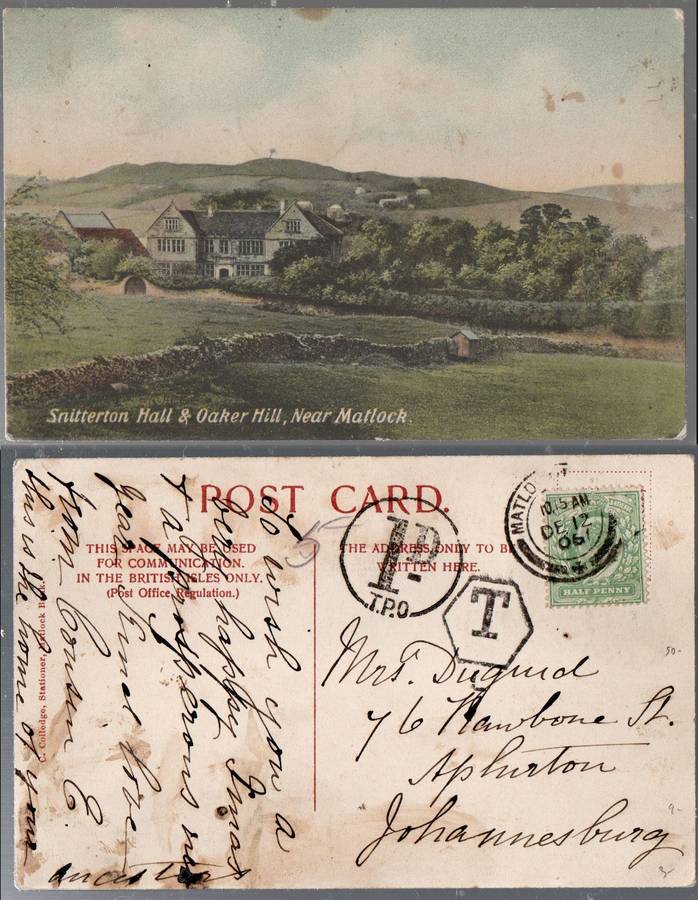 Snitterton Hall & Oaker Hill, Near Matlock.
POST CARD.
THIS SPACE MAY BE USED
FOR COMMUNICATION.
IN THE BRITISH ISLES ONLY.
(Post Office Regulation.)
THE ADDRESS ONLY TO BE
WRITTEN HERE.
MATLO
10.15 AM
DE 12
06
HALF PENNY
1D.
T.P.O
T
5
Mrs. Duguid
76 Hawbone St.
Aphurton
Johannesburg
to wish you a
very happy Xmas
& a prosperous new
year. fond love
from Cousin E
this is the home of your
ancestors
C. Colledge, Stationer, Matlock B
50-
9-
3-